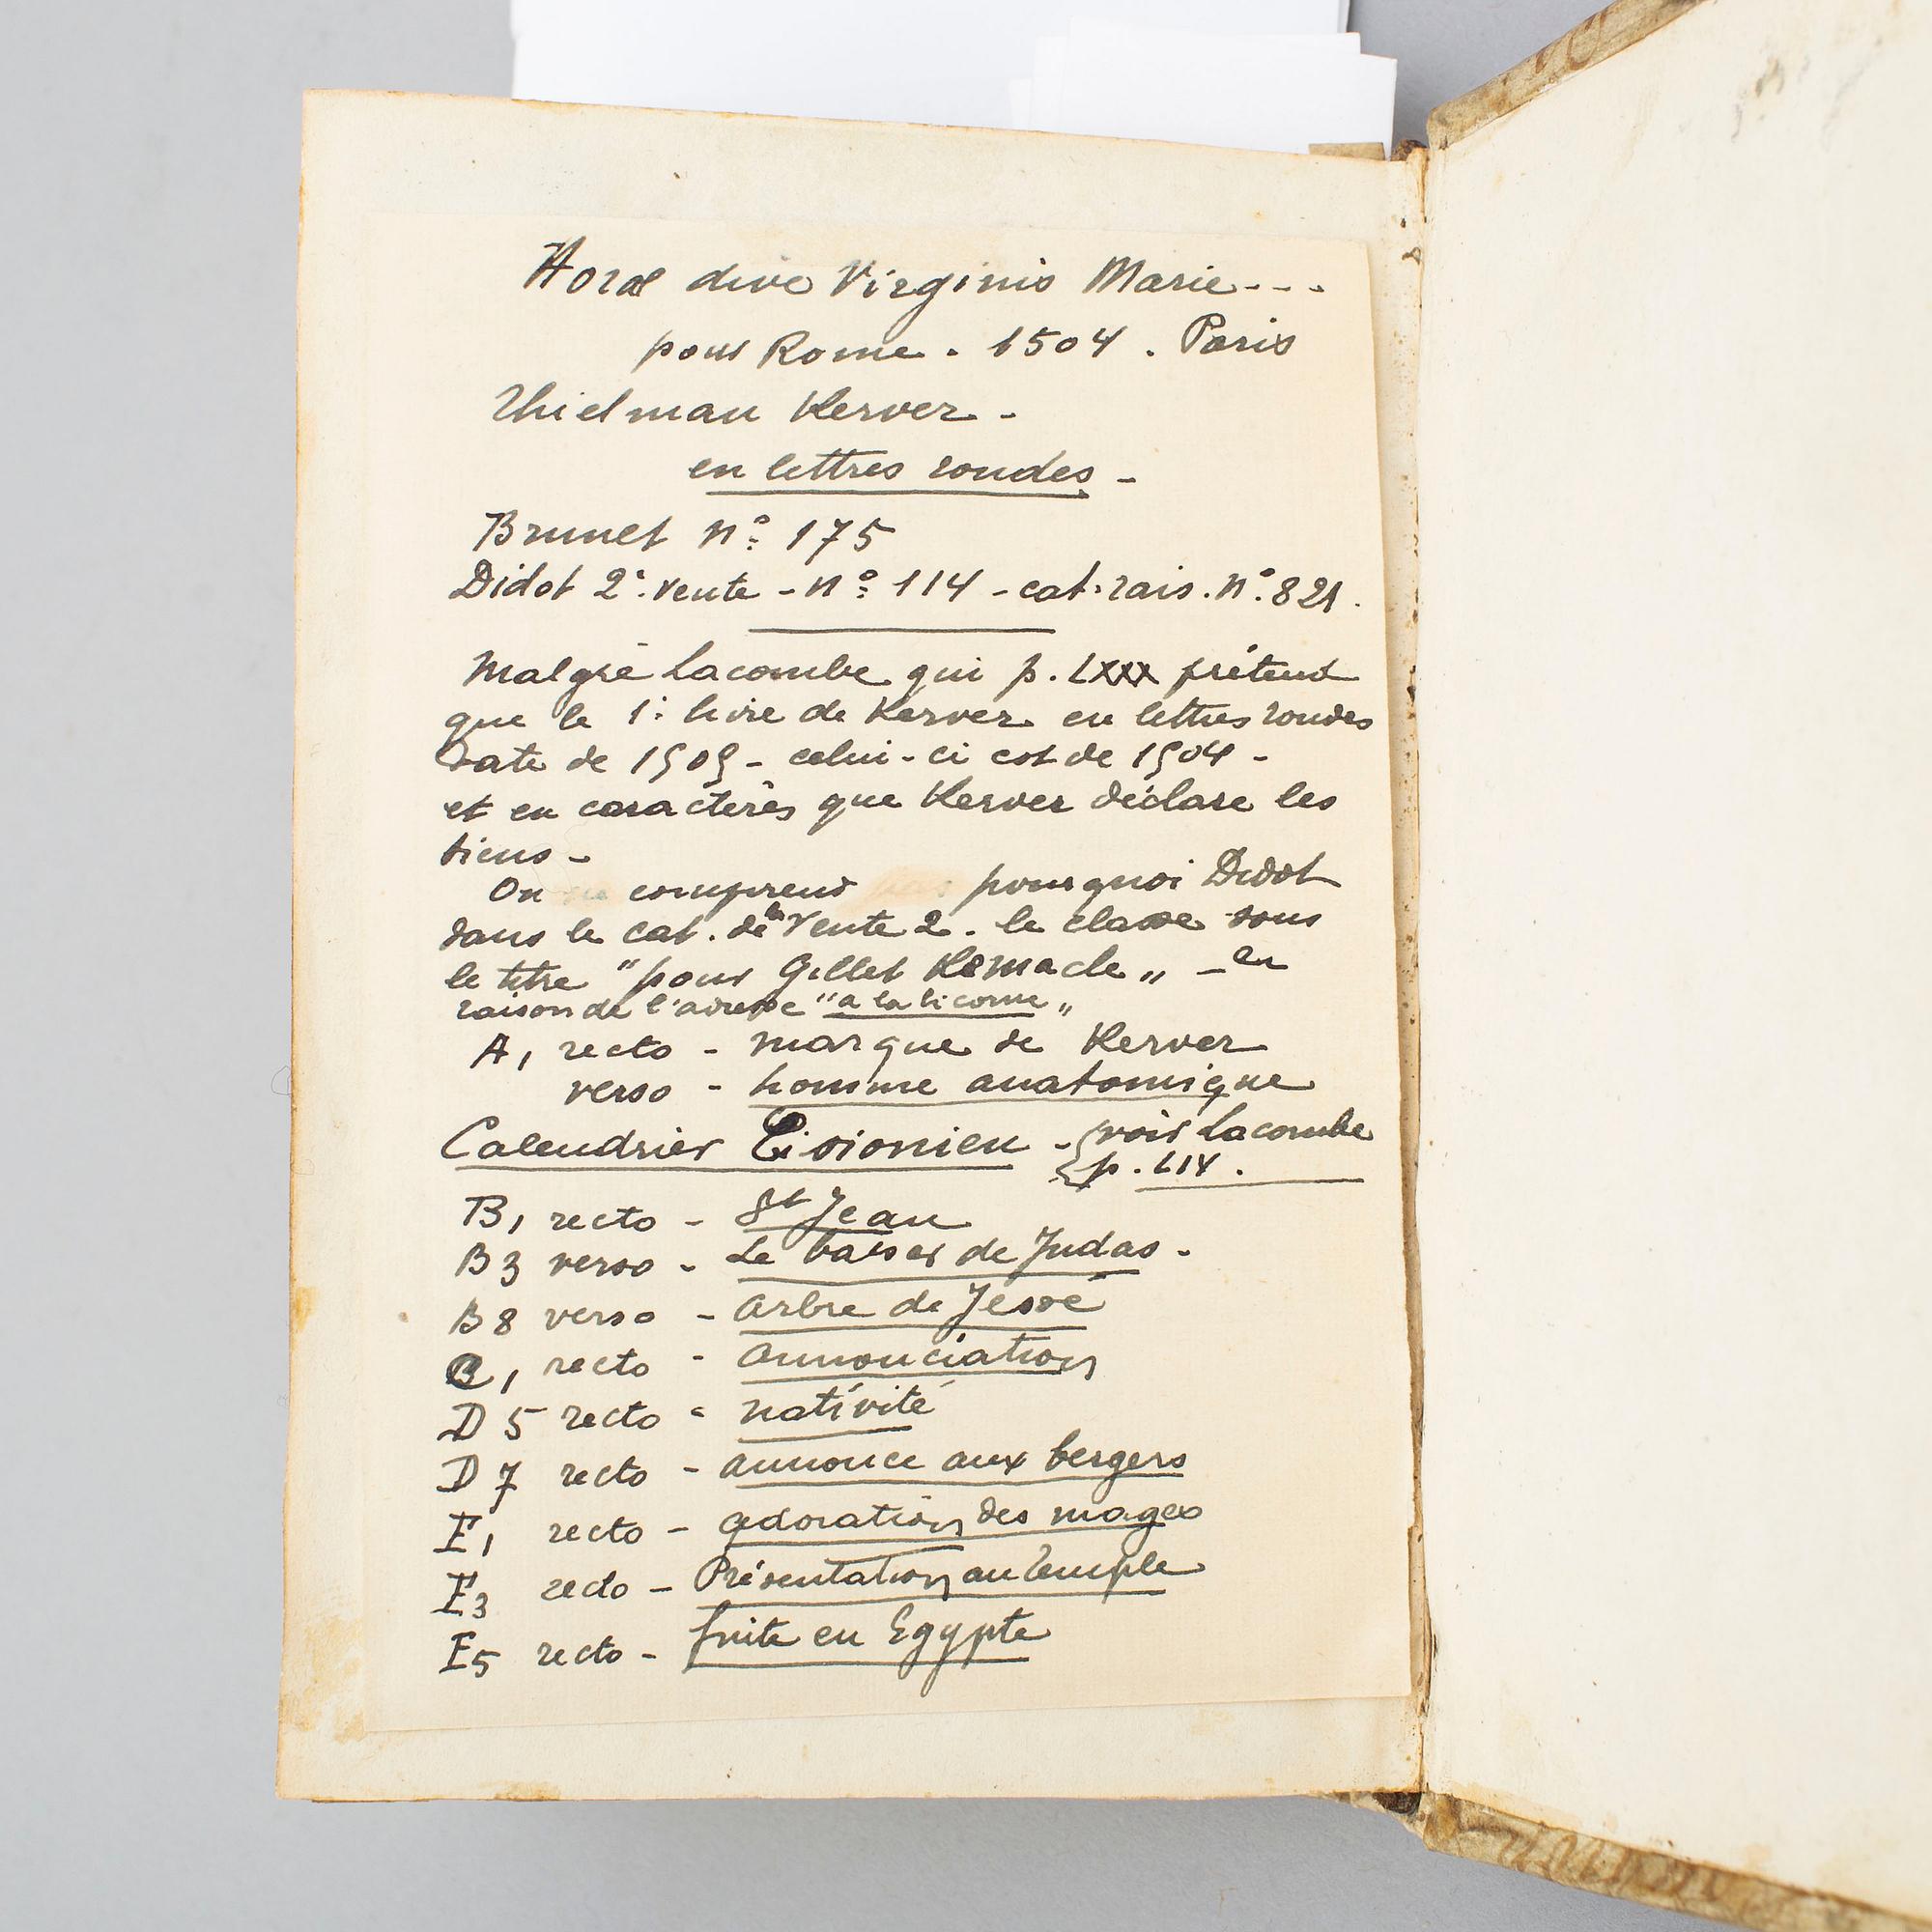 Horæ dive Virginis Marie---
pour Rome. 1504. Paris
Thielman Kerver -
en lettres rondes -
Brunet n° 175
Didot 2e vente - n° 114 - cat. rais. n° 821.
Malgré Lacombe qui p. LXXX prétend
que le 1er livre de Kerver en lettres rondes
date de 1505 - celui-ci est de 1504 -
et en caractères que Kerver déclare les
siens -
On comprend pourquoi Didot
dans le cat. de la Vente 2. le classe sous
le titre "pour Gillet Remacle" - en
raison de l'adresse "a la licorne"
A1 recto - marque de Kerver
verso - homme anatomique
Calendrier Cisionien - voir Lacombe
p. LIX.
B1 recto - St Jean
B3 verso - Le baiser de Judas -
B8 verso - arbre de Jessé
C1 recto - annonciation
D5 recto - nativité
D7 recto - annonce aux bergers
E1 recto - adoration des mages
E3 recto - Présentation au Temple
E5 recto - fuite en Egypte